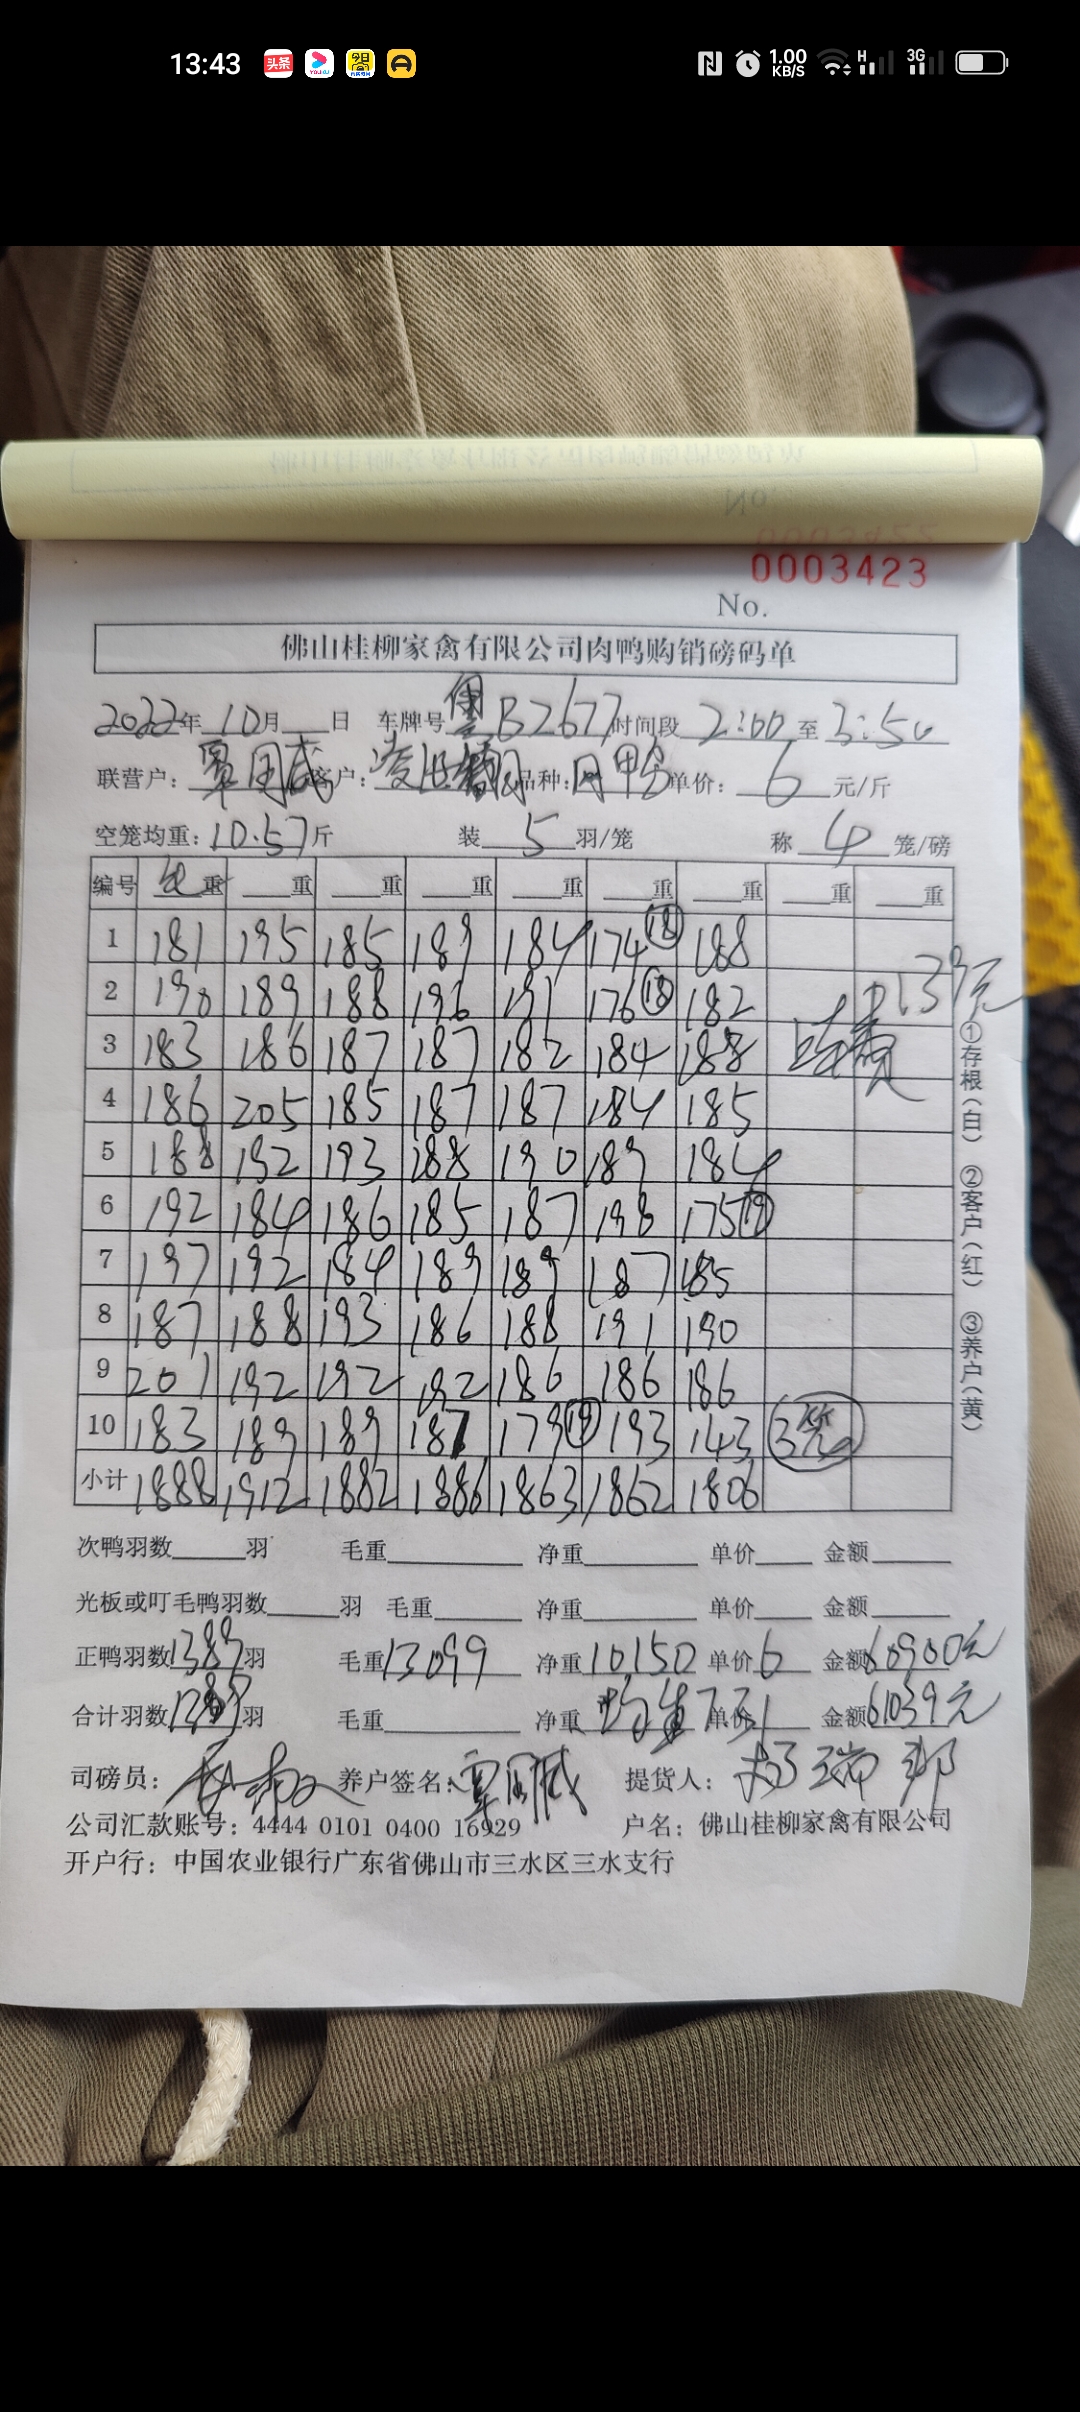 13:43 头条 YOUKU 今日 1.00 KB/S H 3G
0003422
0003423
No.
佛山桂柳家禽有限公司肉鸭购销磅码单
2022年10月 日 车牌号 B2677 时间段 2:00 至 3:50
联营户: 覃国威 客户: 品种: 单价: 6 元/斤
空笼均重: 10.57斤 装 5 羽/笼 称 4 笼/磅
编号 毛重 重 重 重 重 重 重 重 重
1 181 195 185 189 184 174 (18) 188
2 190 189 188 196 191 176 (18) 182 139元
3 183 186 187 187 182 184 188 费
4 186 205 185 187 187 184 185
5 188 192 193 188 190 189 184
6 192 184 186 185 187 198 175 (19)
7 197 192 184 189 189 187 185
8 187 188 193 186 188 191 190
9 201 192 192 192 186 186 186
10 183 189 189 187 179 (19) 193 143 (3笼)
小计 1888 1912 1882 1886 1863 1862 1806
①存根(白) ②客户(红) ③养户(黄)
次鸭羽数 羽 毛重 净重 单价 金额
光板或叮毛鸭羽数 羽 毛重 净重 单价 金额
正鸭羽数1389羽 毛重13099 净重10150 单价6 金额60900元
合计羽数1389羽 毛重 净重 均重 单价 金额61039元
司磅员: 养户签名: 覃国威 提货人: 杨瑞邦
公司汇款账号: 4444 0101 0400 16929 户名: 佛山桂柳家禽有限公司
开户行: 中国农业银行广东省佛山市三水区三水支行